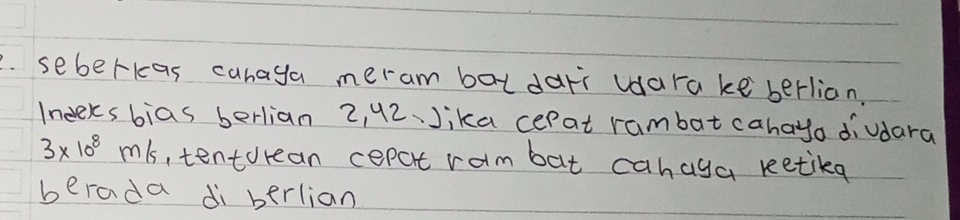 2. seberkas cahaya merambat dari udara ke berlian.
Indeks bias berlian 2,42. Jika cepat rambat cahaya diudara
3x10⁸ m/s, tentukan cepat rambat cahaya ketika
berada di berlian